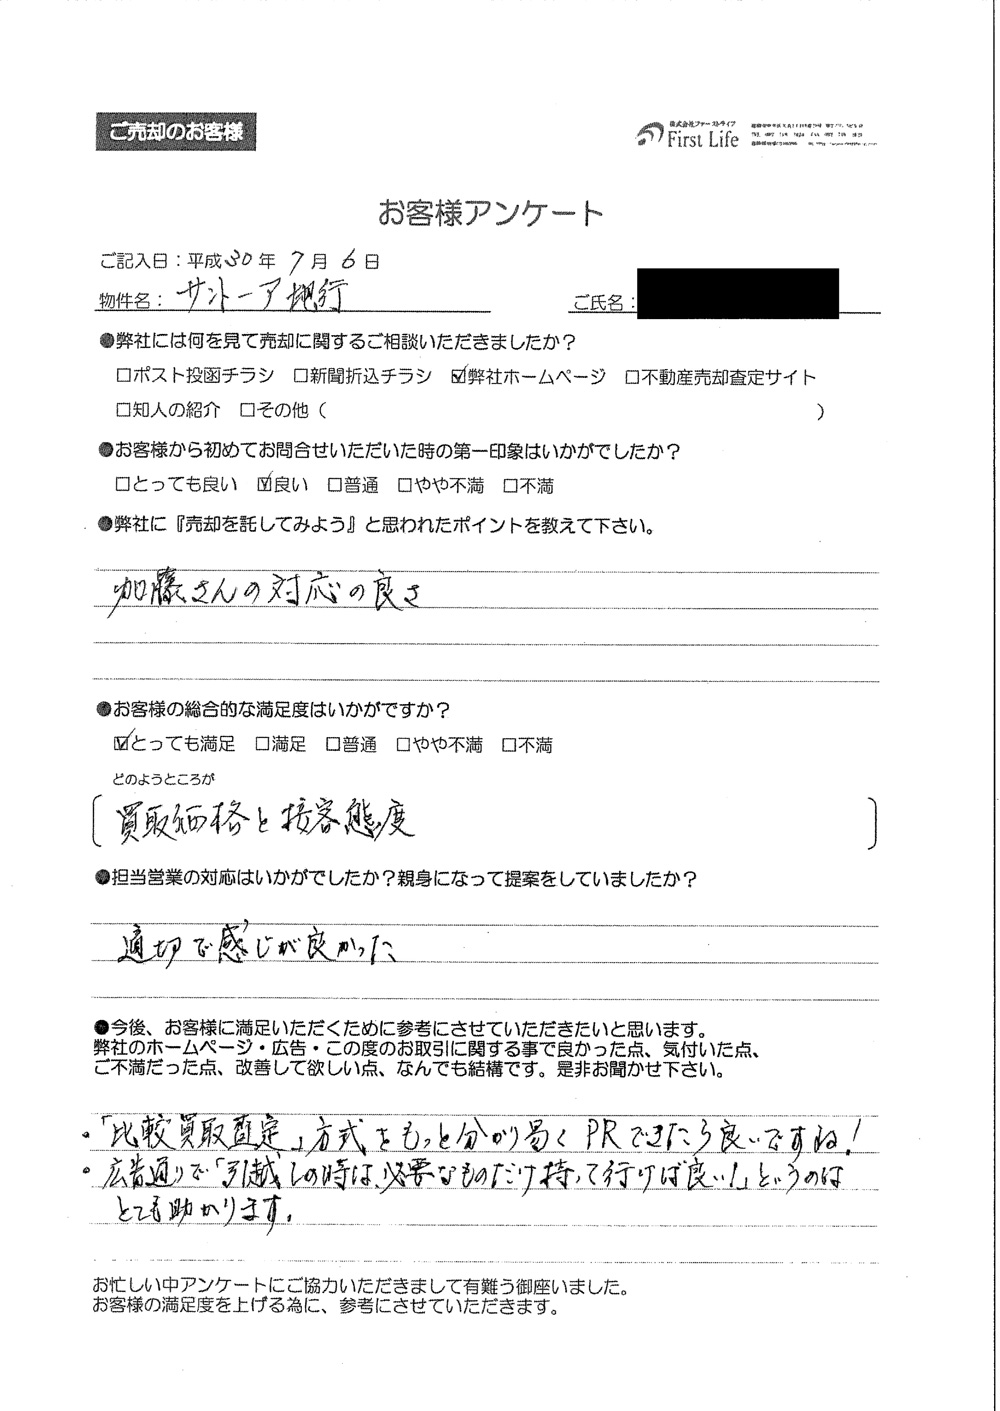 ご売却のお客様
株式会社ファーストライフ
First Life
お客様アンケート
ご記入日：平成30年 7月 6日
物件名： サントーア ご氏名：
●弊社には何を見て売却に関するご相談いただきましたか？
□ポスト投函チラシ □新聞折込チラシ ☑弊社ホームページ □不動産売却査定サイト
□知人の紹介 □その他（ ）
●お客様から初めてお問合せいただいた時の第一印象はいかがでしたか？
□とっても良い ☑良い □普通 □やや不満 □不満
●弊社に『売却を託してみよう』と思われたポイントを教えて下さい。
加藤さんの対応の良さ
●お客様の総合的な満足度はいかがですか？
☑とっても満足 □満足 □普通 □やや不満 □不満
どのようところが
買取価格と接客態度
●担当営業の対応はいかがでしたか？親身になって提案をしていましたか？
適切で感じが良かった
●今後、お客様に満足いただくために参考にさせていただきたいと思います。
弊社のホームページ・広告・この度のお取引に関する事で良かった点、気付いた点、
ご不満だった点、改善して欲しい点、なんでも結構です。是非お聞かせ下さい。
・「比較買取査定」方式をもっと分かり易くPRできたら良いですね！
・広告通りで「引越しの時は、必要なものだけ持って行けば良い！」というのは
とても助かります。
お忙しい中アンケートにご協力いただきまして有難う御座いました。
お客様の満足度を上げる為に、参考にさせていただきます。